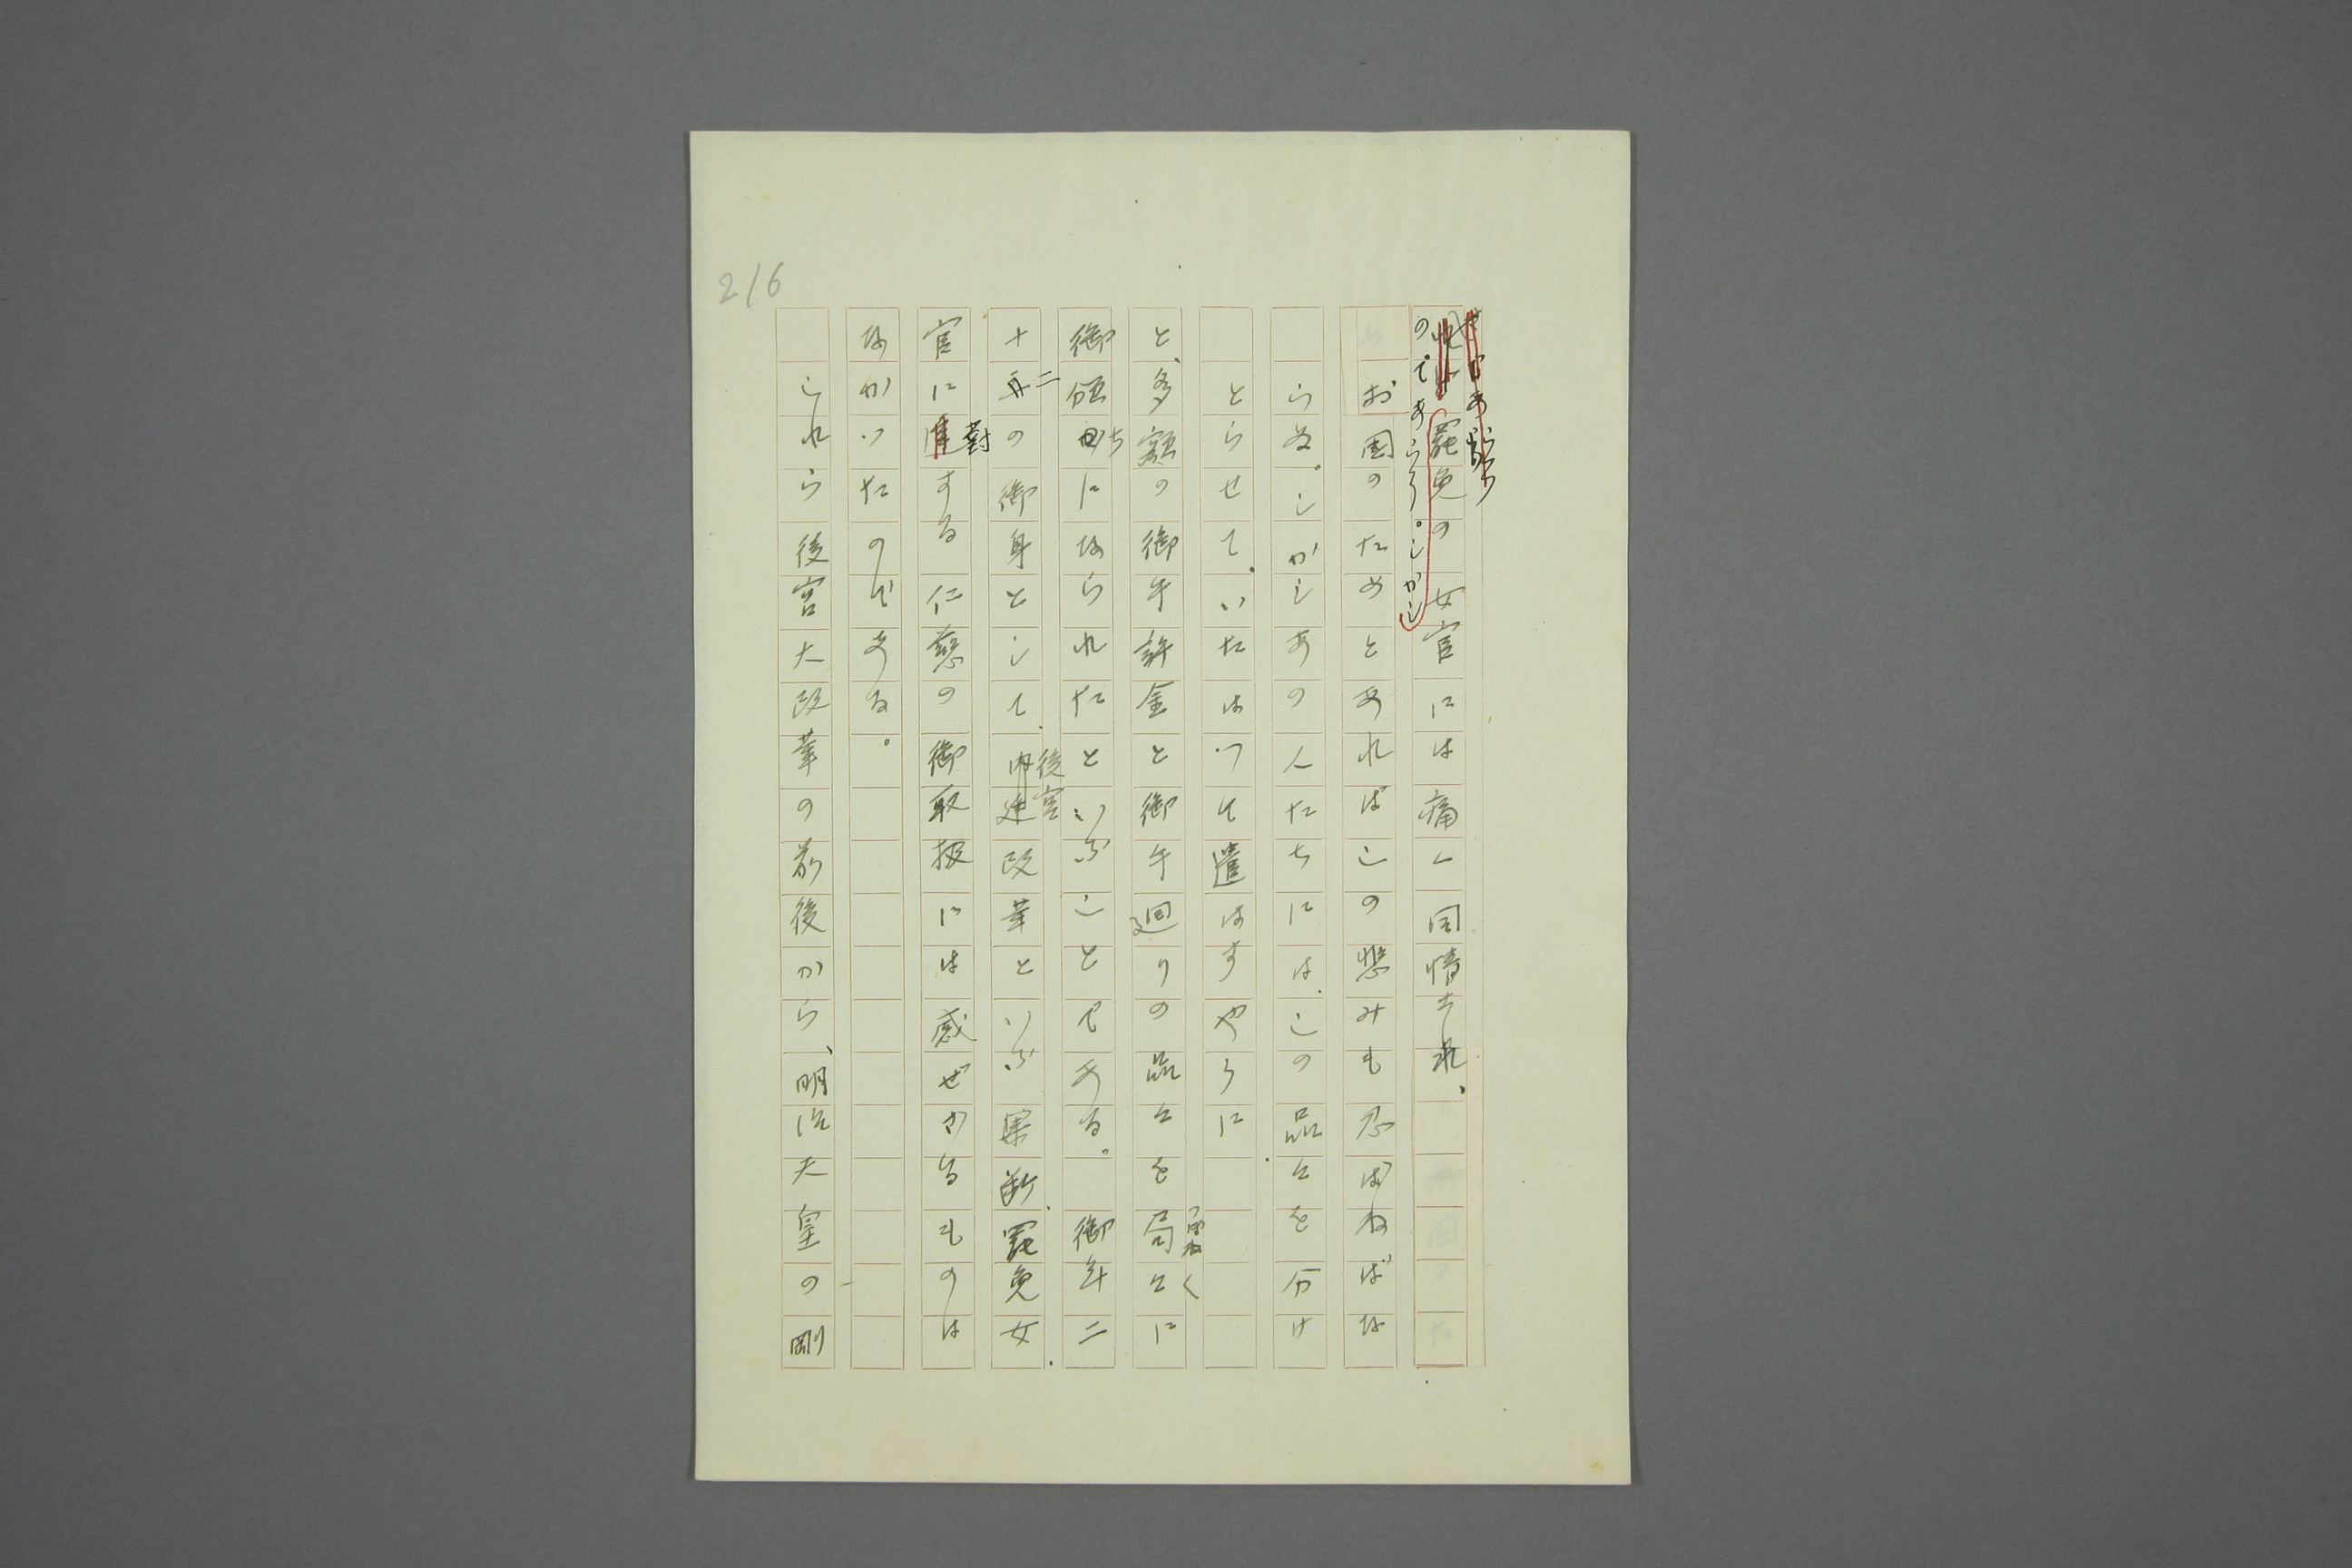 216
のであらう。しかし
罷免の女官には痛く同情され、
お國のためとあればこの悲みも忍ばねばな
らぬ。しかしあの人たちには、この品々を分け
とらせて、いたはつて遣はすやうに
と、多額の御手許金と御手廻りの品々を局々に
御頒ちになられたといふことである。御年二
十二の御身として、後宮改革といふ果断、罷免女
官に對する仁慈の御取扱には感ぜざるものは
なかつたのである。
これら後宮大改革の前後から、明治天皇の剛